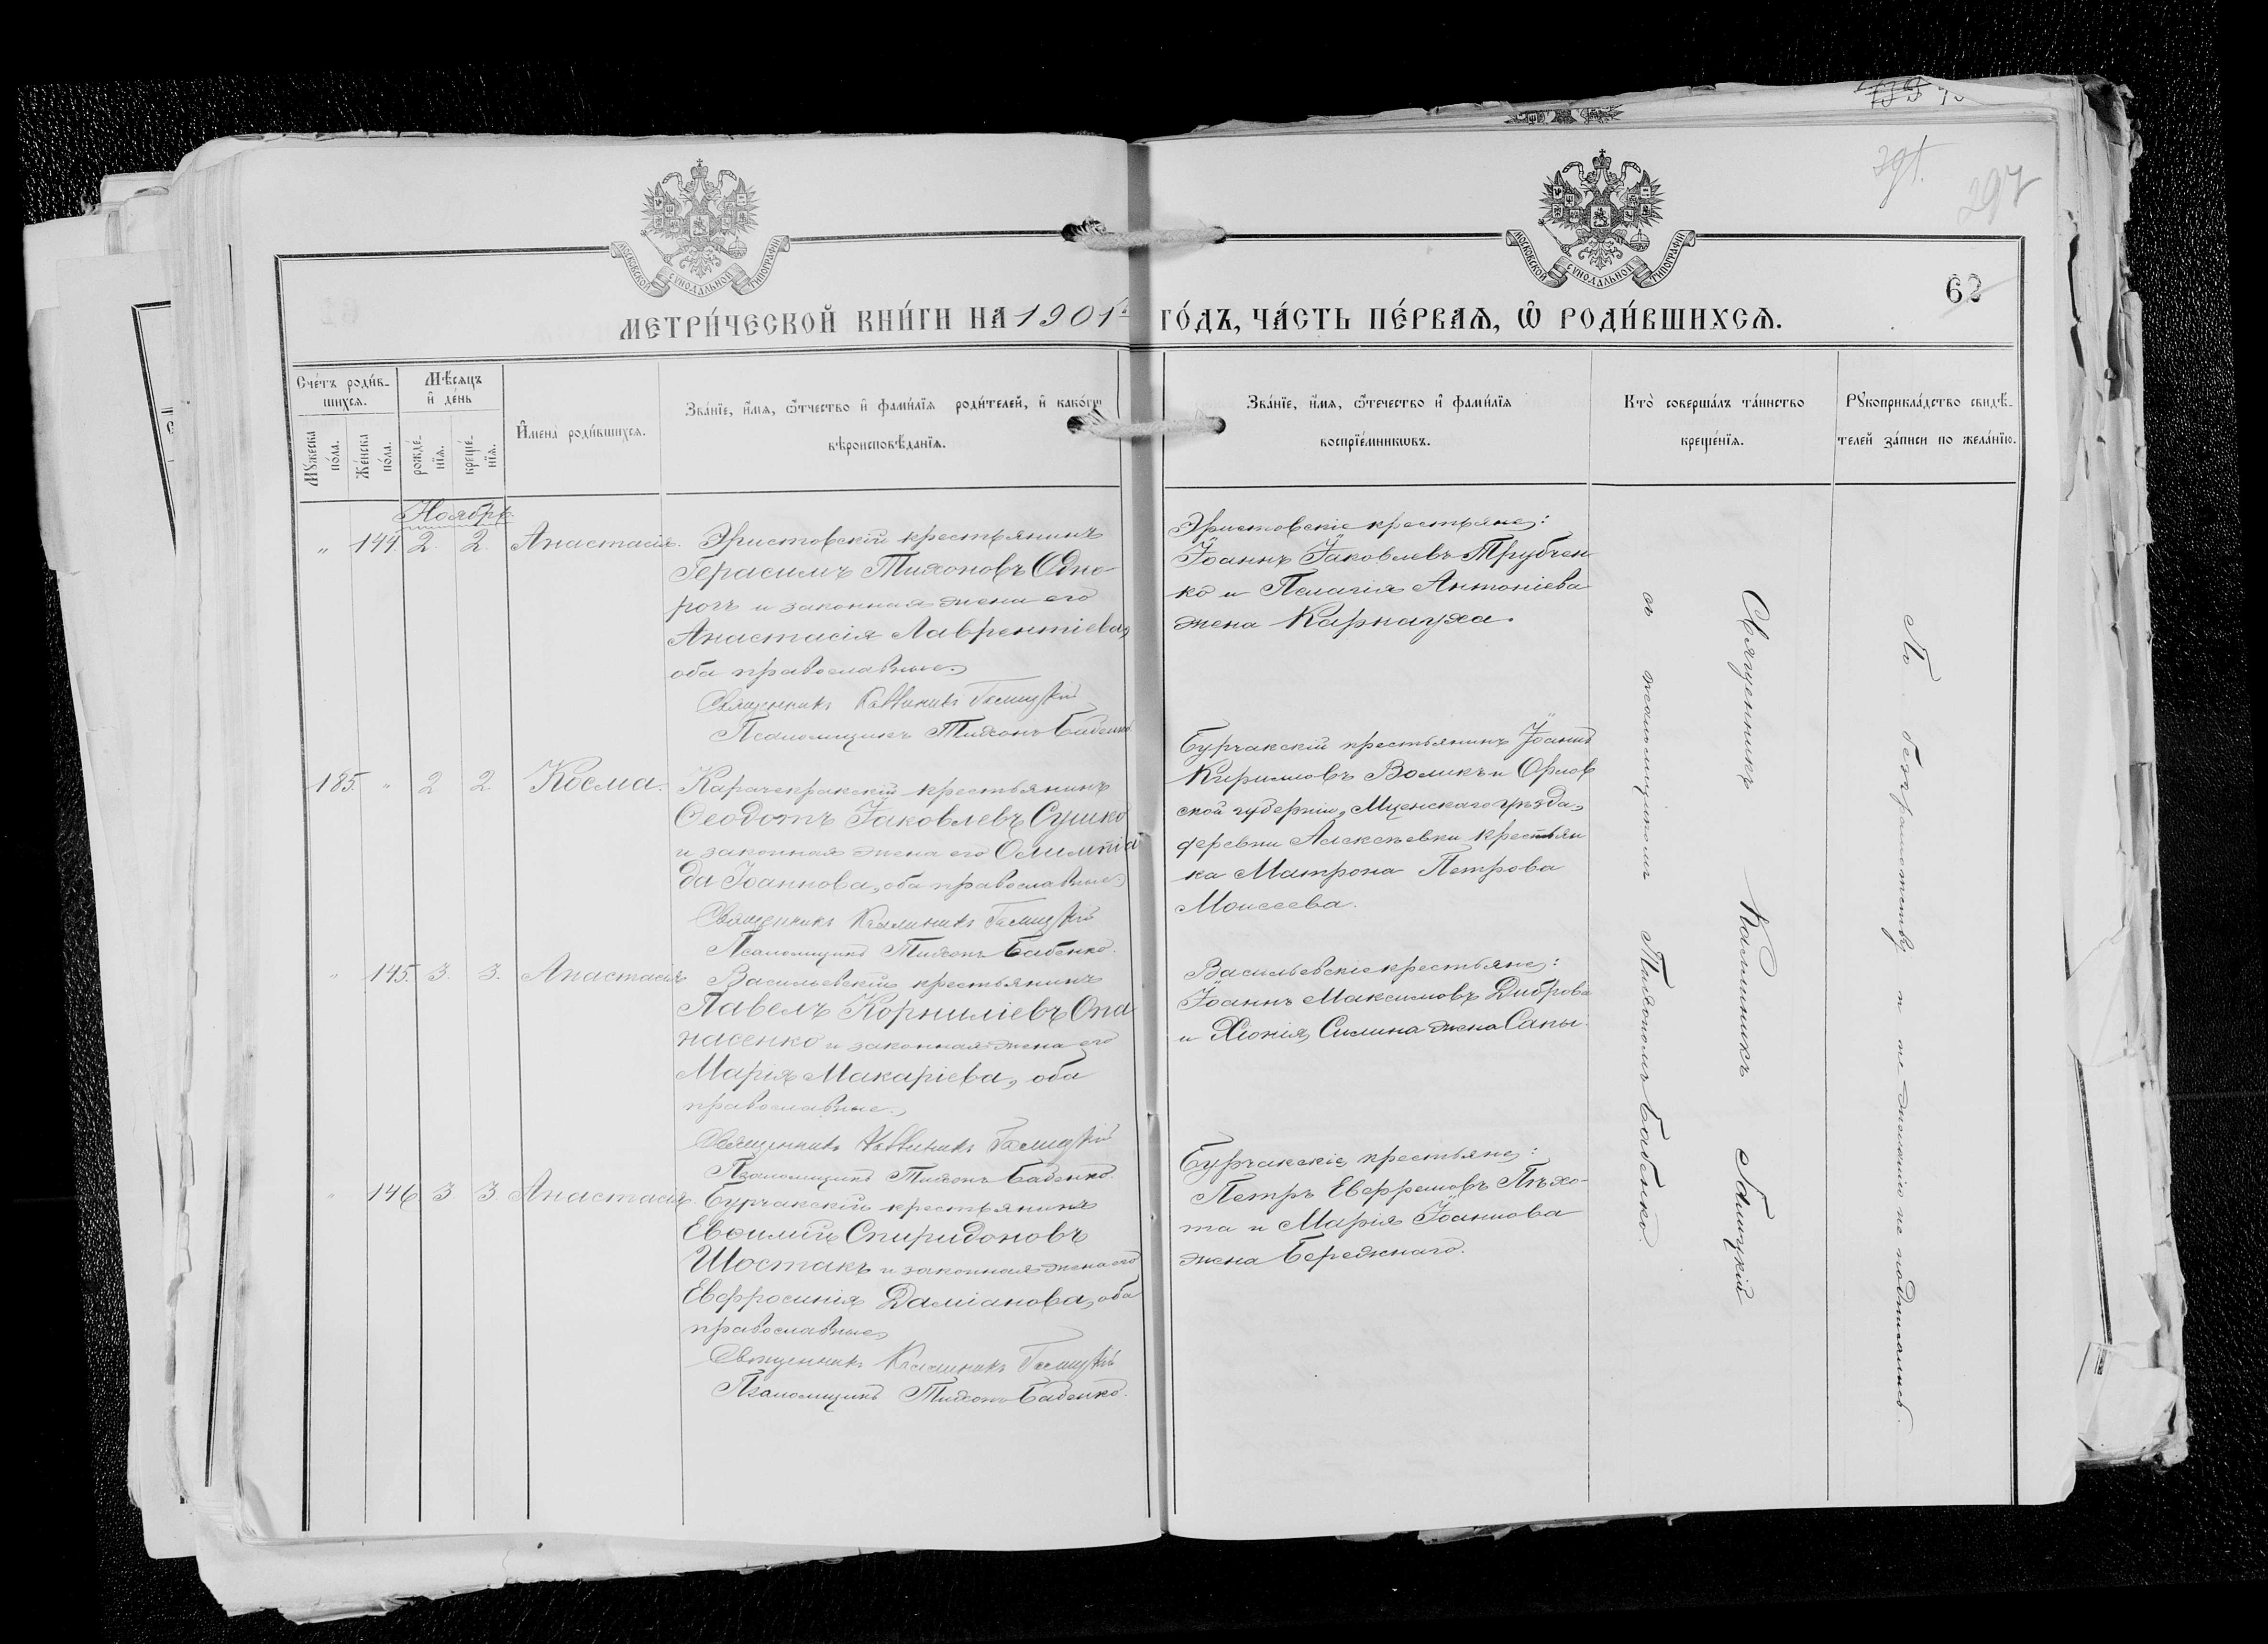 297
62
МОСКОВСКОЙ СѴНОДАЛЬНОЙ ТИПОГРАФІИ
МОСКОВСКОЙ СѴНОДАЛЬНОЙ ТИПОГРАФІИ
МЕТРИ́ЧЕСКОЙ КНИ́ГИ НА 1901 ГО́ДЪ, ЧА́СТЬ ПЕ́РВАѦ, Ѽ РОДИ́ВШИХСѦ.
Сче́тъ роди́в-
шихсѧ.
Мꙋжеска по́ла.
Же́нска по́ла.
Мѣ́сѧцъ и҆ де́нь
рожде́-
нїѧ.
креще́-
нїѧ.
И҆мена̀ роди́вшихсѧ.
Зва́нїе, и҆́мѧ, ѻ҆́тчество и҆ фамі́лїѧ роди́телей, и҆ како́гѡ
вѣроисповѣ́данїѧ.
Зва́нїе, и҆́мѧ, ѻ҆́течество и҆ фамі́лїѧ
воспрїе́мникѡвъ.
Кто̀ соверша́лъ та́инство
креще́нїѧ.
Рꙋкоприкла́дство свидѣ́-
телей за́писи по жела́нїю.
Ноябрь
„ 144. 2. 2. Анастасія.
Эристовскій крестьянинъ
Герасимъ Тихоновъ Одно-
рогъ и законная жена его
Анастасія Лаврентіева,
оба православные.
Священникъ Каллиникъ Галицкій
Псаломщикъ Тихонъ Бабенко
Эристовскіе крестьяне:
Іоаннъ Іаковлевъ Трубчен
ко и Пелагія Антоніева
жена Карнауха.
185. „ 2 2 Косма.
Карачекракскій крестьянинъ
Ѳеодотъ Іаковлевъ Сушко
и законная жена его Олимпіа
да Іоаннова, оба православные
Священникъ Каллиникъ Галицкій
Псаломщикъ Тихонъ Бабенко.
Бурчакскій крестьянинъ Іоаннъ
Кирилловъ Воликъ и Орлов
ской губерніи, Мценскаго уѣзда,
деревни Алексѣевки крестьян
ка Матрона Петрова
Моисеева.
„ 145. 3. 3. Анастасія
Васильевскій крестьянинъ
Павелъ Корниліевъ Опа
насенко и законная жена его
Марія Макаріева, оба
православные.
Священникъ Каллиникъ Галицкій
Псаломщикъ Тихонъ Бабенко.
Васильевскіе крестьяне:
Іоаннъ Максимовъ Диброва
и Хіонія Силина жена Сапы.
„ 146 3 3 Анастасія.
Бурчакскій крестьянинъ
Евѳимій Спиридоновъ
Шостакъ и законная жена его
Евфросинія Даміанова, оба
православные
Священникъ Каллиникъ Галицкій
Псаломщикъ Тихонъ Бабенко.
Бурчакскіе крестьяне:
Петръ Ефремовъ Пѣхо-
та и Марія Іоаннова
жена Бережнаго.
Священникъ Каллиникъ Галицкій
съ псаломщикомъ Тихономъ Бабенко
По безграмотству и не желанію не подписались.